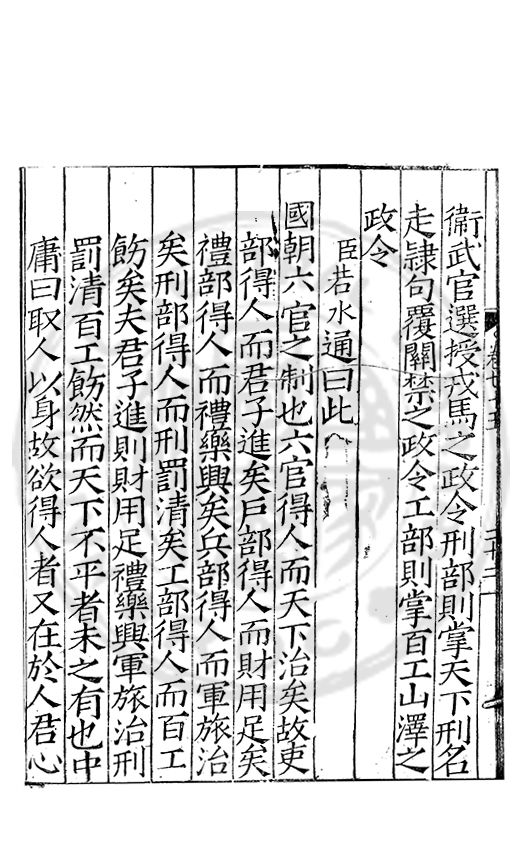 衞武官選授戎馬之政令刑部則掌天下刑名
走隷句覆關禁之政令工部則掌百工山澤之
政令
臣若水通曰此
國朝六官之制也六官得人而天下治矣故吏
部得人而君子進矣戶部得人而財用足矣
禮部得人而禮樂興矣兵部得人而軍旅治
矣刑部得人而刑罰清矣工部得人而百工
飭矣夫君子進則財用足禮樂興軍旅治刑
罰清百工飭然而天下不平者未之有也中
庸曰取人以身故欲得人者又在於人君心